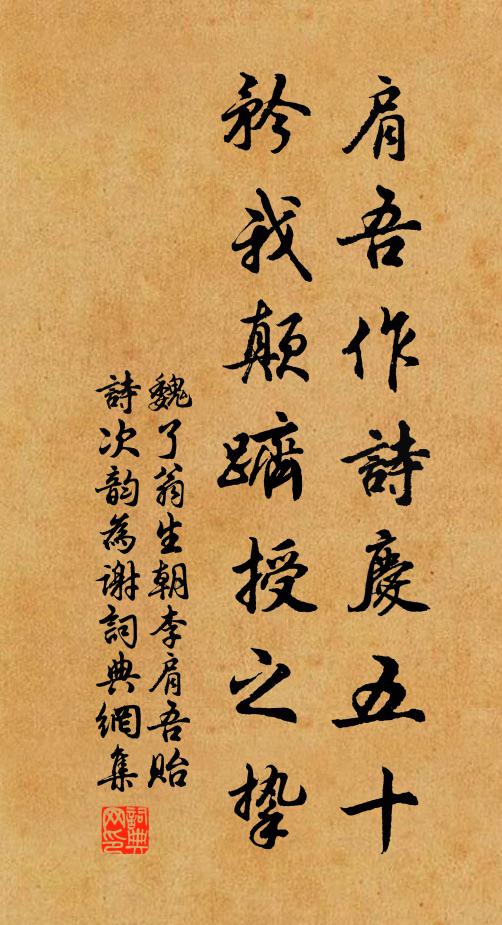 肩吾作詩慶五十
矜我顛躋授之摯
魏了翁生朝李肩吾貽
詩次韵為谢詞典網集
詞典
网印